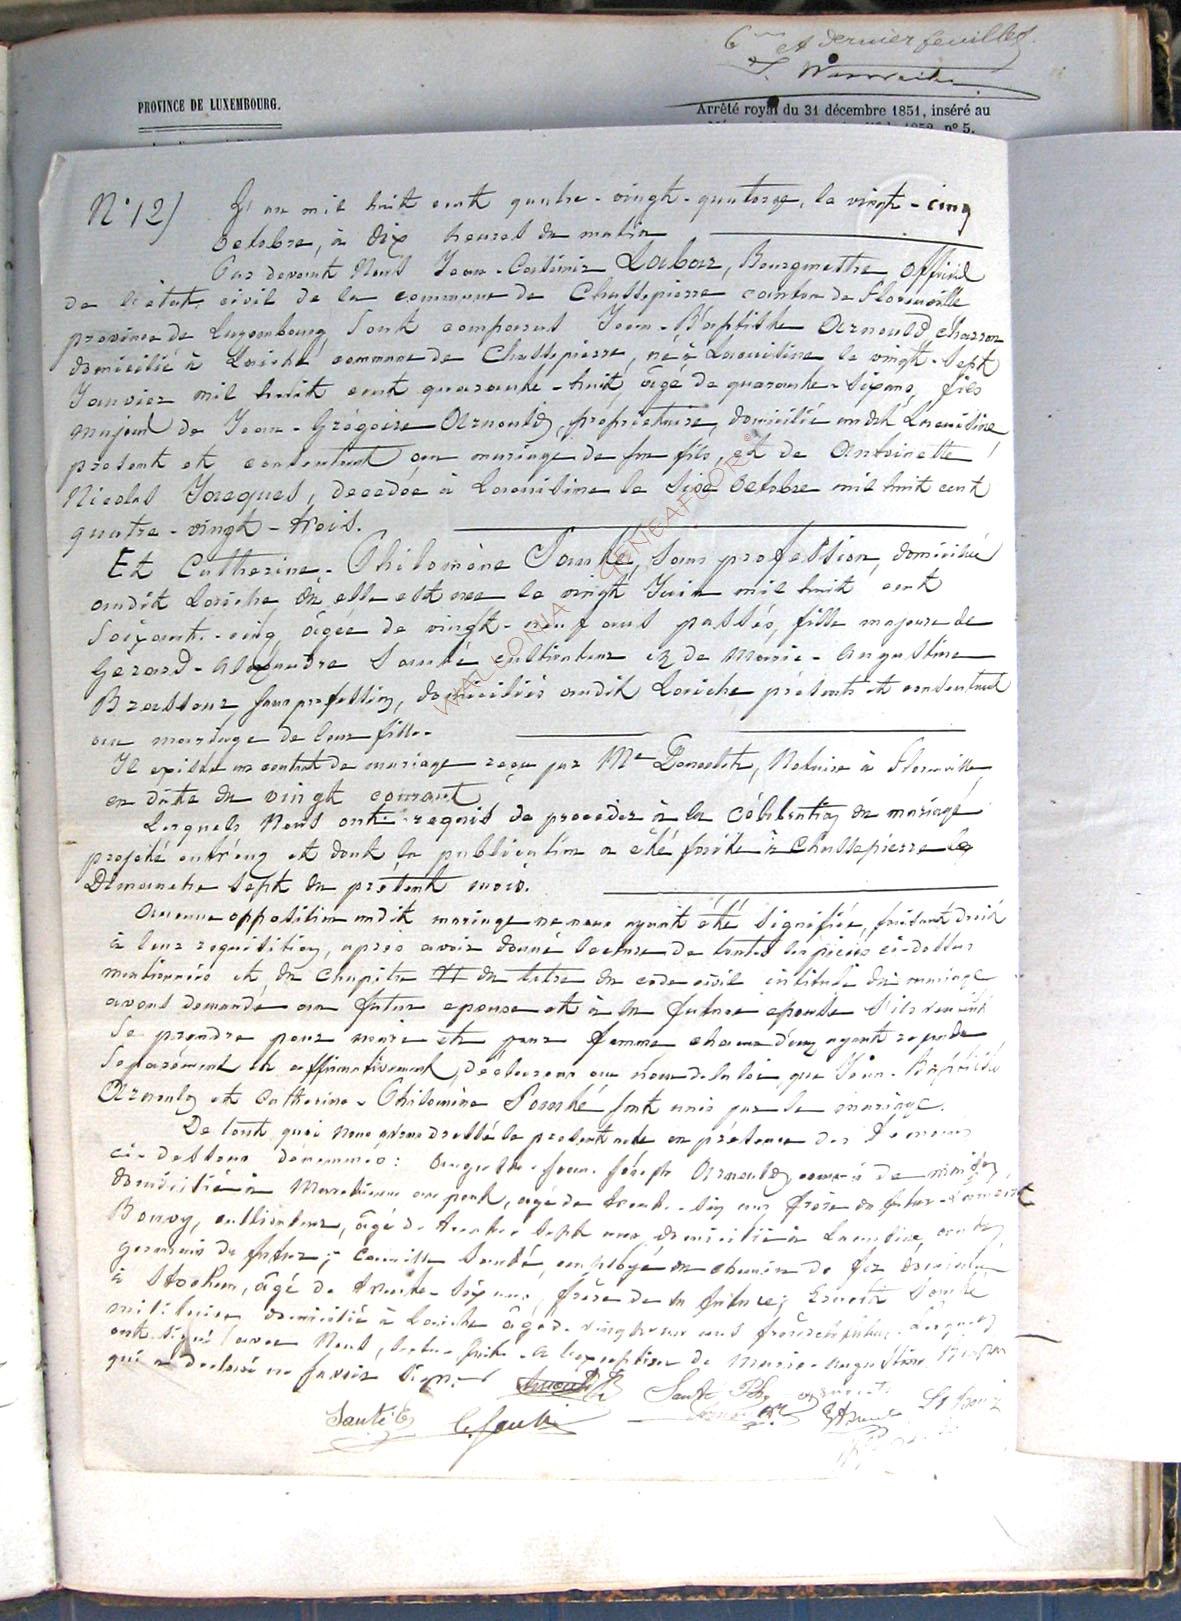 6me et dernier feuillet
PROVINCE DE LUXEMBOURG.
Arrêté royal du 31 décembre 1851, inséré au
1852, n° 5.
N° 12)
L'an mil huit cent quatre-vingt-quatorze, le vingt-cinq
octobre, à dix heures du matin
Par devant Nous Jean-Casimir Labar, Bourgmestre officier
de l'état civil de la commune de Chassepierre canton de Florenville
province de Luxembourg sont comparus Jean-Baptiste Arnould, charron
domicilié à Laiche commune de Chassepierre, né à Lacuisine le vingt-sept
Janvier mil huit cent quarante-huit, âgé de quarante-six ans, fils
majeur de Jean-Grégoire Arnould, propriétaire, domicilié audit Lacuisine
présent et consentant au mariage de son fils, et de Antoinette
Nicolas Jacques, décédée à Lacuisine le six octobre mil huit cent
quatre-vingt-trois.
Et Catherine-Philomène Santé, sans profession, domiciliée
audit Laiche où elle est née le vingt Juin mil huit cent
soixante-cinq, âgée de vingt-neuf ans passés, fille majeure de
Gérard-Alexandre Santé cultivateur et de Marie-Augustine
Brasseur, sans profession, domiciliés audit Laiche, présents et consentant
au mariage de leur fille.
Il existe un contrat de mariage reçu par Me, Notaire à Florenville
en date du vingt courant
Lesquels Nous ont requis de procéder à la célébration du mariage
projeté entr'eux et dont la publication a été faite à Chassepierre le
Dimanche sept du présent mois.
Aucune opposition audit mariage ne nous ayant été signifiée, faisant droit
à leur réquisition, après avoir donné lecture de toutes les pièces ci-dessus
mentionnées et du chapitre VI du titre du code civil intitulé du mariage
avons demandé au futur époux et à la future épouse s'ils veulent
se prendre pour mari et pour femme, chacun d'eux ayant répondu
séparément et affirmativement, déclarons au nom de la loi que Jean-Baptiste
Arnould et Catherine-Philomène Santé sont unis par le mariage.
De tout quoi nous avons dressé le présent acte en présence des témoins
ci-dessous dénommés: Auguste-Jean-Joseph Arnould, de
domicilié à Marchienne au pont, âgé de trente-six ans frère du futur
Bouvy, cultivateur, âgé de trente-sept ans, domicilié à Lacuisine, cousin
germain du futur; Camille Santé, employé au chemin de fer domicilié
à Stockem, âgé de trente-six ans, frère de la future; Ernest Santé
militaire domicilié à Laiche âgé de vingt ans frère de la future. Lesquels
ont signé avec Nous, lecture faite, à l'exception de Marie-Augustine
qui a déclaré ne savoir signer
Santé
Santé E
C. Santé
WALLONIA - GENEAFLOOR ©